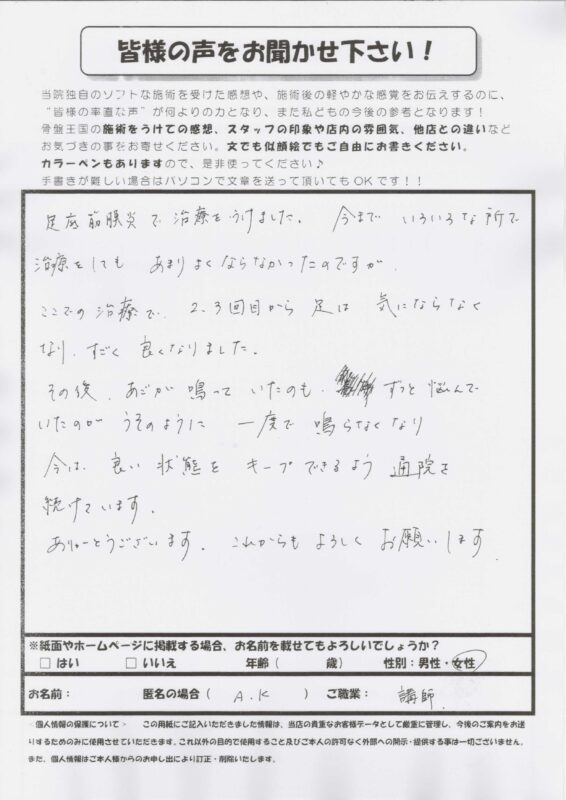 皆様の声をお聞かせ下さい！
当院独自のソフトな施術を受けた感想や、施術後の軽やかな感覚をお伝えするのに、
“皆様の率直な声”が何よりの力となり、また私どもの今後の参考となります！
骨盤王国の施術をうけての感想、スタッフの印象や店内の雰囲気、他店との違いなど
お気づきの事をお寄せください。文でも似顔絵でもご自由にお書きください。
カラーペンもありますので、是非使ってください♪
手書きが難しい場合はパソコンで文章を送って頂いてもOKです！！
足底筋膜炎で治療をうけました。 今まで いろいろな所で
治療をしても あまりよくならなかったのですが、
ここでの治療で、2、3回目から 足は 気にならなく
なり、すごく 良くなりました。
その後、あごが鳴っていたのも、 ずっと悩んで
いたのが うそのように 一度で 鳴らなくなり
今は、良い 状態を キープできるよう 通院を
続けています。
ありがとうございます。これからも よろしく お願いします
※紙面やホームページに掲載する場合、お名前を載せてもよろしいでしょうか？
□ はい □ いいえ 年齢（ 歳） 性別：男性・女性
お名前： 匿名の場合（ A.K ） ご職業： 講師
<個人情報の保護について> この用紙にご記入いただきました情報は、当店の貴重なお客様データとして厳重に管理し、今後のご案内をお送
りするためのみに使用させていただきます。これ以外の目的で使用すること及びご本人の許可なく外部への開示・提供する事は一切ございません。
また、個人情報はご本人様からのお申し出により訂正・削除いたします。